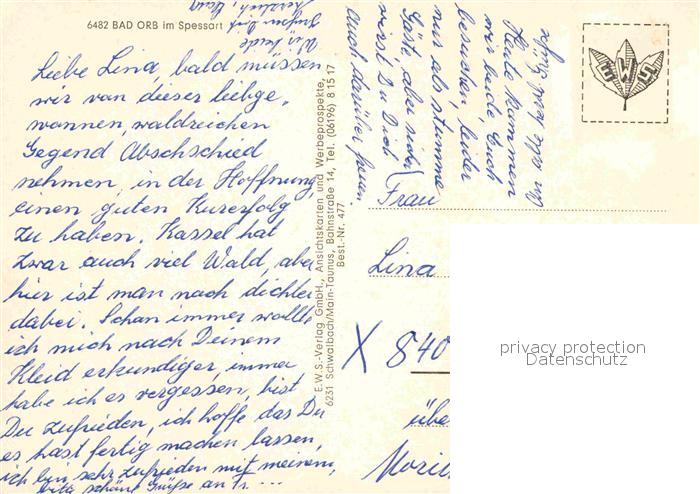 6482 BAD ORB im Spessart
Liebe Lina, bald müssen
wir von dieser liebge-
wonnen, waldreichen
Gegend Abschschied
nehmen, in der Hoffnung
einen guten Kurerfolg
zu haben. Kassel hat
zwar auch viel Wald, aber
hier ist man noch dichter
dabei. Schon immer wollte
ich mich nach Deinem
Kleid erkundigen, immer
habe ich es vergessen, bist
Du zufrieden, ich hoffe das Du
es hast fertig machen lassen,
ich bin sehr zufrieden mit meinem,
schöne Grüße an
Wir beide
E.W.S.-Verlag GmbH., Ansichtskarten und Werbeprospekte,
6231 Schwalbach/Main-Taunus, Bahnstraße 14, Tel. (06196) 8 15 17
Best.-Nr. 477
Heute kommen
wir beide Euch
besuchen, leider
nur als stumme
Gäste, aber sicher
wirst Du Dich
auch darüber freuen.
EWS
Frau
Lina
X 840
übe
Morit
privacy protection
Datenschutz